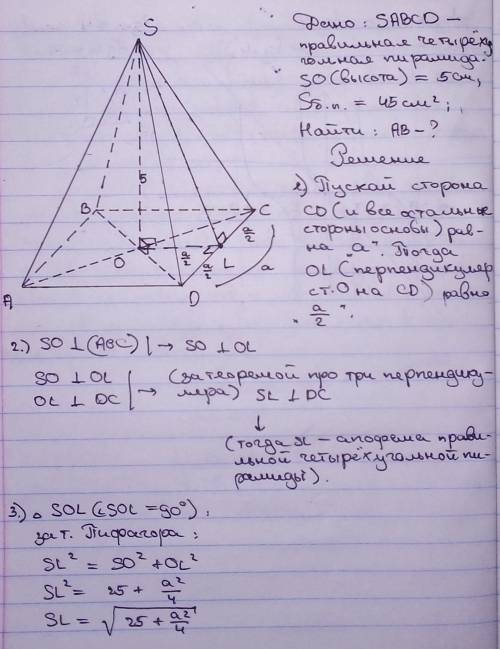 S
B
C
5
O
L
A
D
a/2
a/2
a/2
a
Дано: SABCD –
правильная четырёху
гольная пирамида.
SO (высота) = 5 см,
Sб.п. = 45 см²;
Найти: AB - ?
Решение
1) Пускай сторона
CD (и все остальные
стороны основы) рав-
на "a". Тогда
OL (перпендикуляр
с т. O на CD) равно
"a/2".
2.) SO ⊥ (ABC) | → SO ⊥ OL
SO ⊥ OL | → (за теоремой про три перпендику-
OL ⊥ DC | ляра) SL ⊥ DC
↓
(тогда SL – апофема прави-
льной четырёхугольной пи-
рамиды).
3.) △ SOL (∠SOL = 90°),
за т. Пифагора:
SL² = SO² + OL²
SL² = 25 + a²/4
SL = √(25 + a²/4)